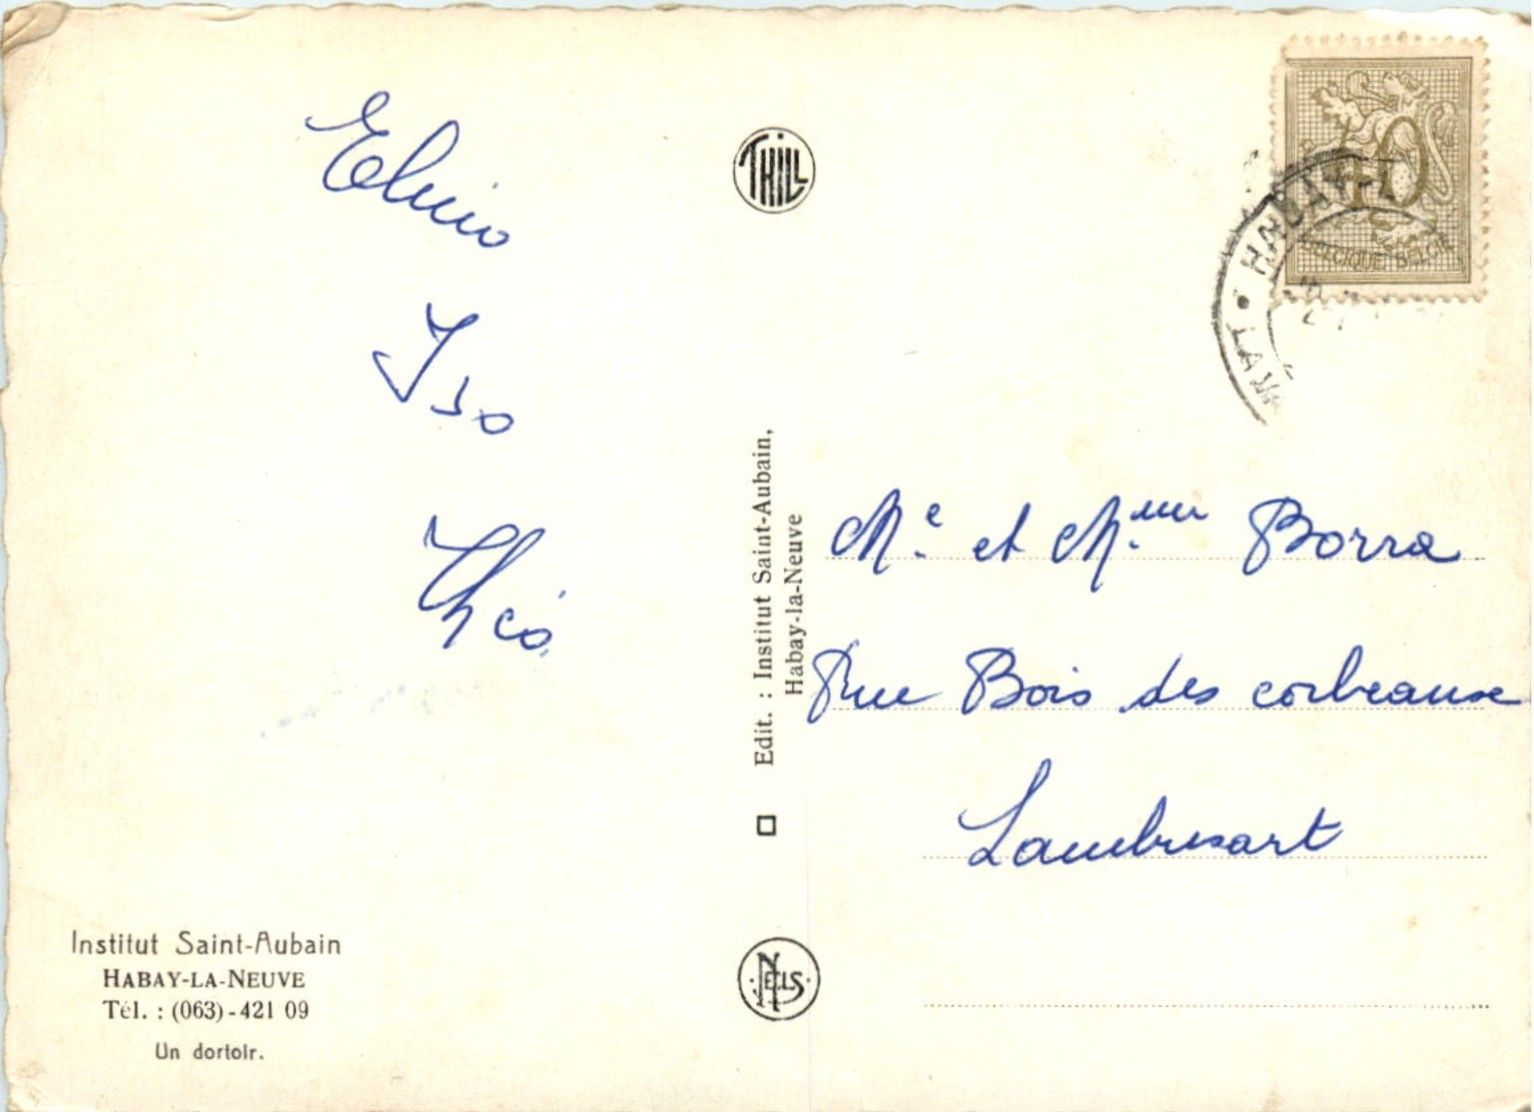 Elvio
Iso
Théo
Institut Saint-Aubain
HABAY-LA-NEUVE
Tél. : (063) - 421 09
Un dortoir.
THILL
Edit. : Institut Saint-Aubain,
Habay-la-Neuve
NELS
40
BELGIQUE BELGIE
HABAY-L
Me et Mme Borra
Rue Bois des corbeaux
Lambusart